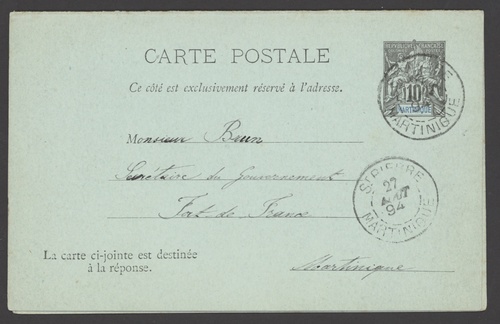 CARTE POSTALE
Ce côté est exclusivement réservé à l'adresse.
RÉPUBLIQUE FRANÇAISE
10
MARTINIQUE
MARTINIQUE
Monsieur Brun
Secrétaire du Gouvernement
Fort de France
Martinique
ST PIERRE
27
AOUT
94
MARTINIQUE
La carte ci-jointe est destinée
à la réponse.